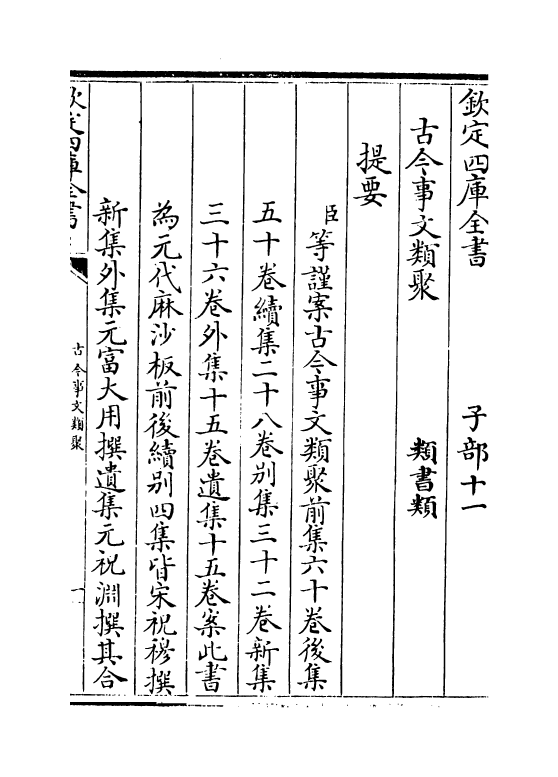 欽定四庫全書 子部十一
古今事文類聚 類書類
提要
臣等謹案古今事文類聚前集六十卷後集
五十卷續集二十八卷别集三十二卷新集
三十六卷外集十五卷遺集十五卷案此書
為元代麻沙板前後續别四集皆宋祝穆撰
新集外集元富大用撰遺集元祝淵撰其合
欽定四庫全書
古今事文類聚
一